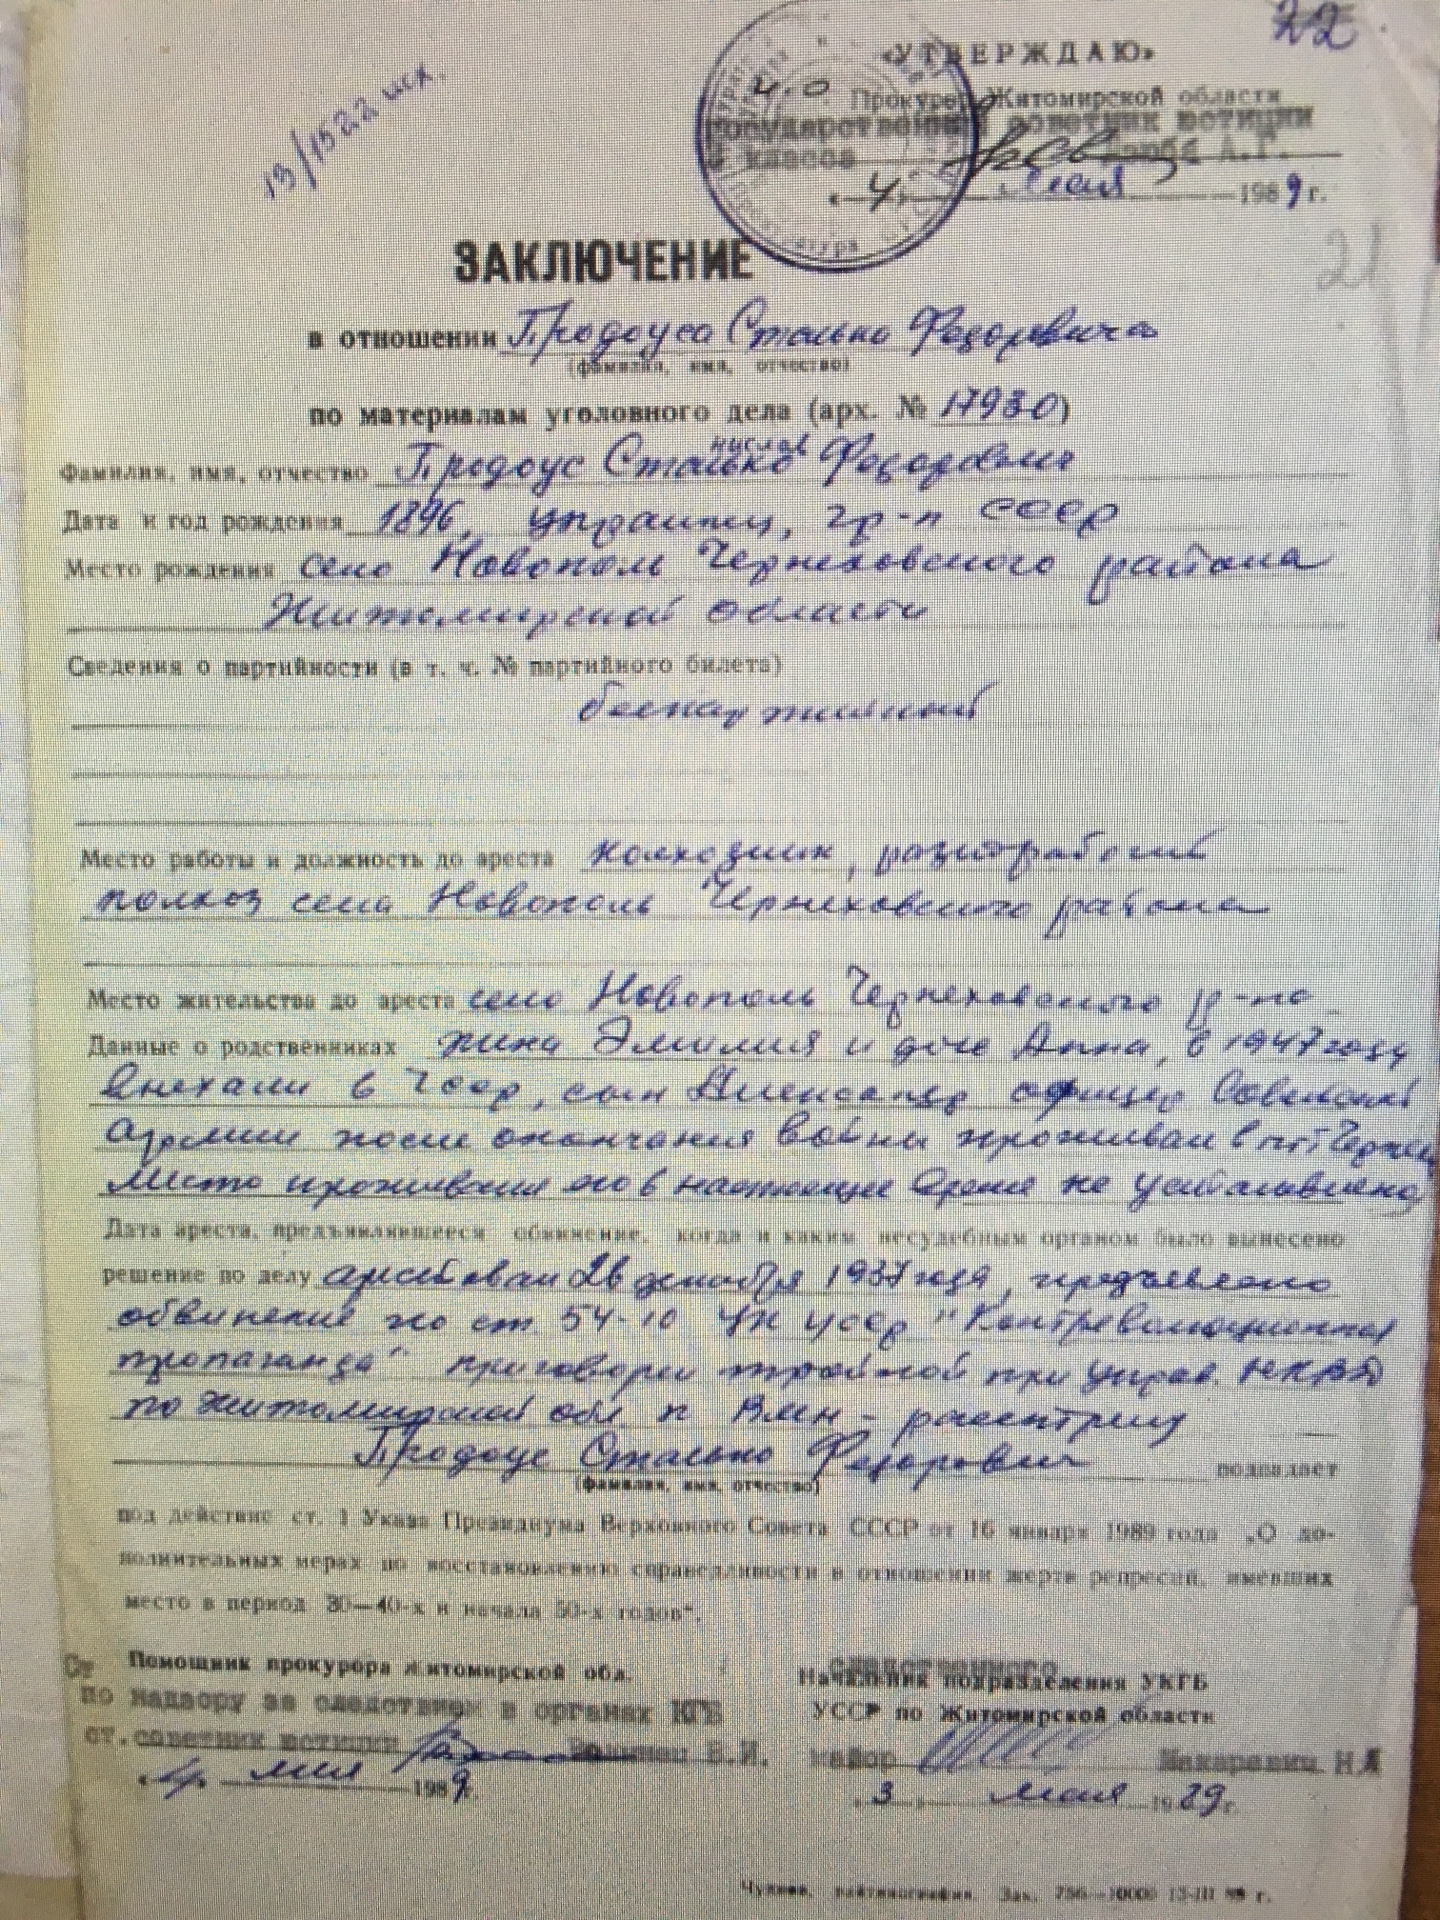 22
13/1522 исх.
«УТВЕРЖДАЮ»
И.о Прокурор Житомирской области
Государственный советник юстиции
класса А.Г.
«4» мая 1989 г.
21
ЗАКЛЮЧЕНИЕ
в отношении Продоуса Стасько Федоровича
(фамилия, имя, отчество)
по материалам уголовного дела (арх. № 17930)
Фамилия, имя, отчество Продоус Стасько Федорович
Дата и год рождения 1896, украинец, гр-н СССР
Место рождения село Новополь Черняховского района
Житомирской области
Сведения о партийности (в т. ч. № партийного билета)
беспартийный
Место работы и должность до ареста колхозник, разнорабочий
колхоз села Новополь Черняховского района
Место жительства до ареста село Новополь Черняховского р-на
Данные о родственниках жена Эмилия и дочь Анна, в 1947 году
выехали в ЧССР, сын Александр офицер Советской
Армии после окончания войны проживал в пгт Черняхов
Место проживания его в настоящее время не установлено
Дата ареста, предъявлявшееся обвинение, когда и каким несудебным органом было вынесено
решение по делу арестован 26 декабря 1937 года, предъявлено
обвинение по ст. 54-10 УК УССР "Контрреволюционная
пропаганда" приговорен тройкой при Управ. НКВД
по Житомирской обл к ВМН - расстрелу
Продоус Стасько Федорович подпадает
(фамилия, имя, отчество)
под действие ст. 1 Указа Президиума Верховного Совета СССР от 16 января 1989 года „О до-
полнительных мерах по восстановлению справедливости в отношении жертв репрессий, имевших
место в период 30—40-х и начала 50-х годов".
Ст Помощник прокурора Житомирской обл.
по надзору за следствием в органах КГБ
ст. советник юстиции В.И.
мая 1989 г.
Начальник подразделения УКГБ
УССР по Житомирской области
майор Макаревич Н.А
3 мая 1989 г.
Зак. 756—10000 15-III 89 г.